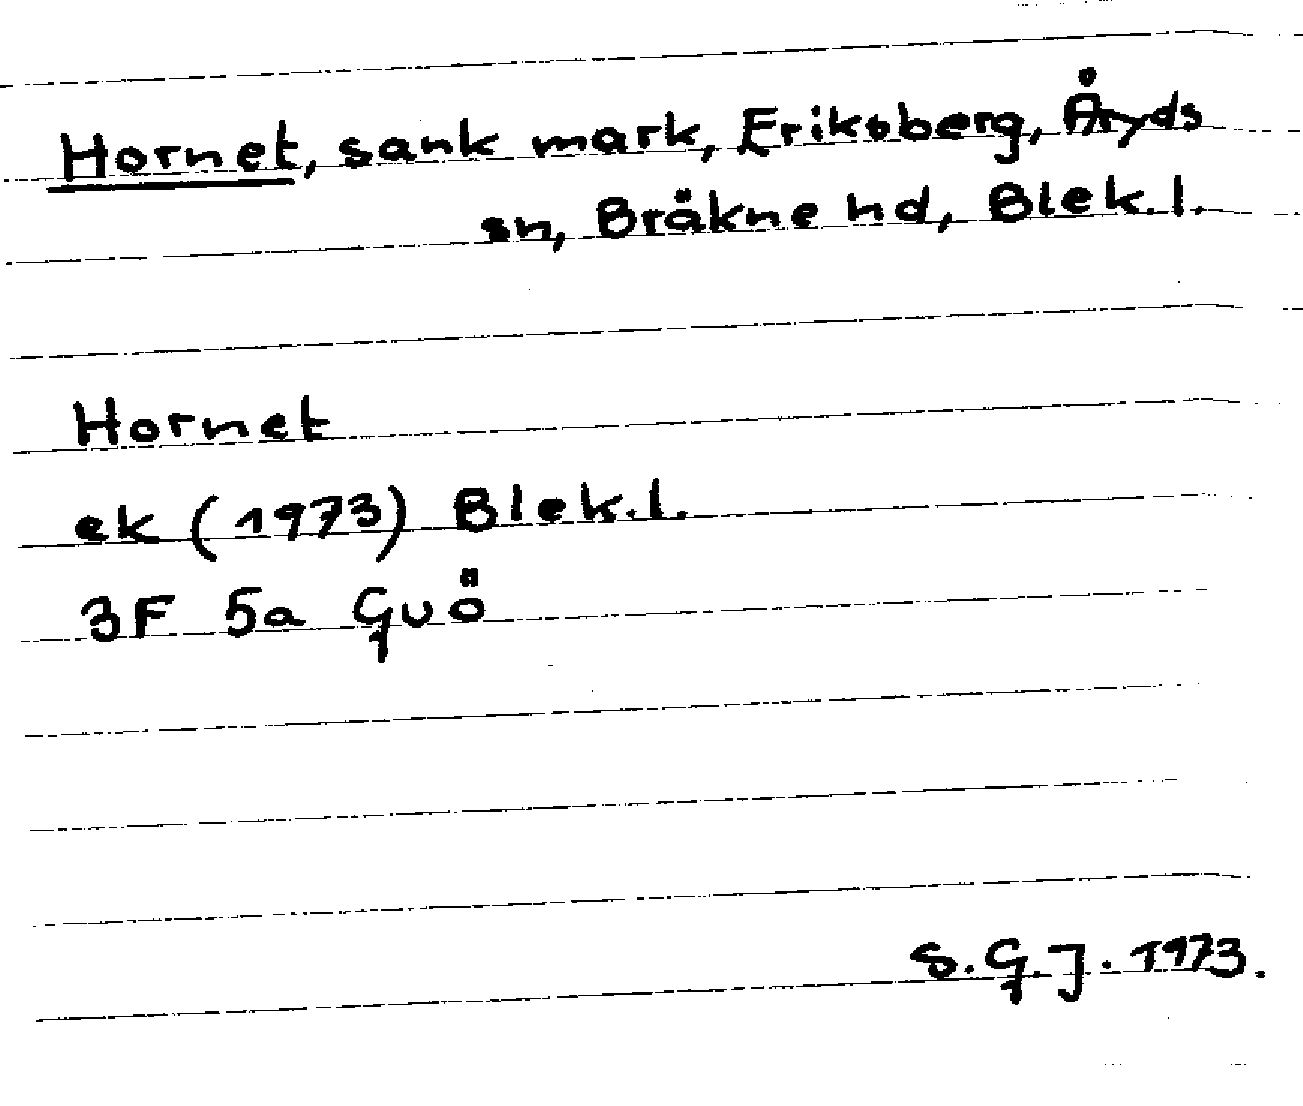 Hornet, sank mark, Eriksberg, Åryds
sn, Bräkne hd, Blek. l.
Hornet
ek (1973) Blek. l.
3F 5a Guö
S. G. J. 1973.